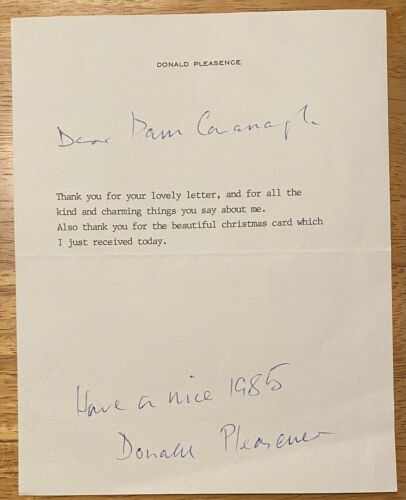 DONALD PLEASENCE
Dear Dawn Cavanagh
Thank you for your lovely letter, and for all the
kind and charming things you say about me.
Also thank you for the beautiful christmas card which
I just received today.
Have a nice 1985
Donald Pleasence